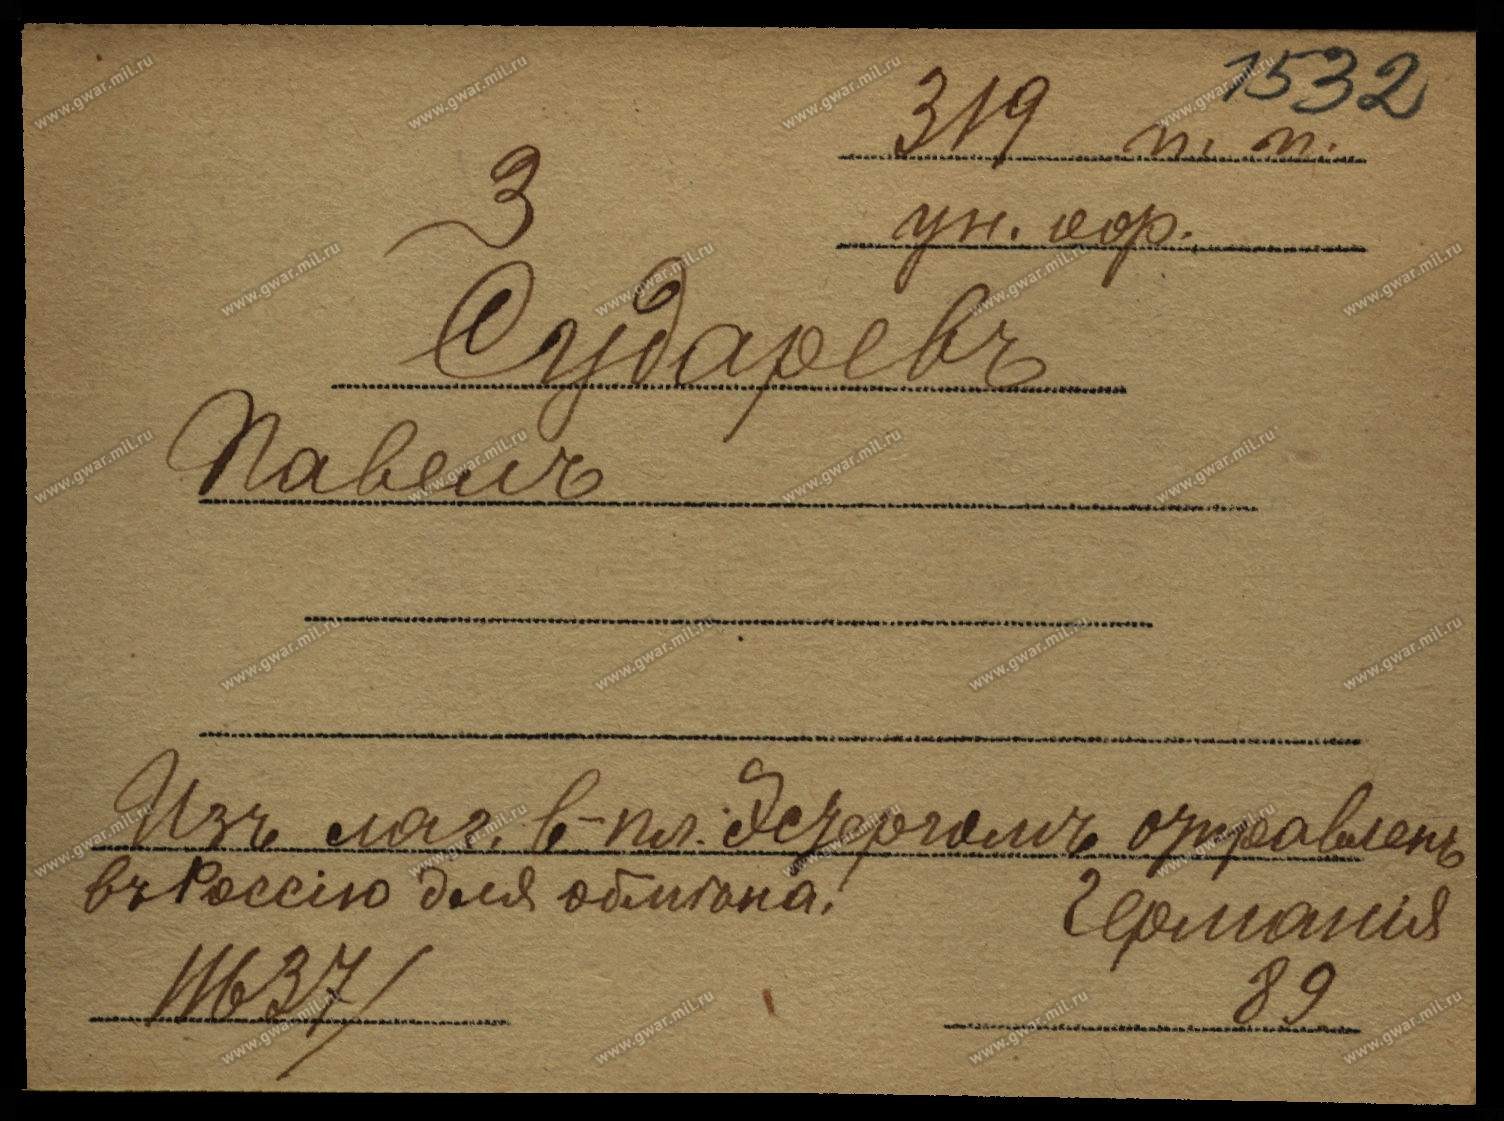 1532
319 п. п.
3
ун. оф.
Сударевъ
Павелъ
Изъ лаг. в-пл. отправленъ
въ Россію для обмѣна.
Германія
89
www.gwar.mil.ru